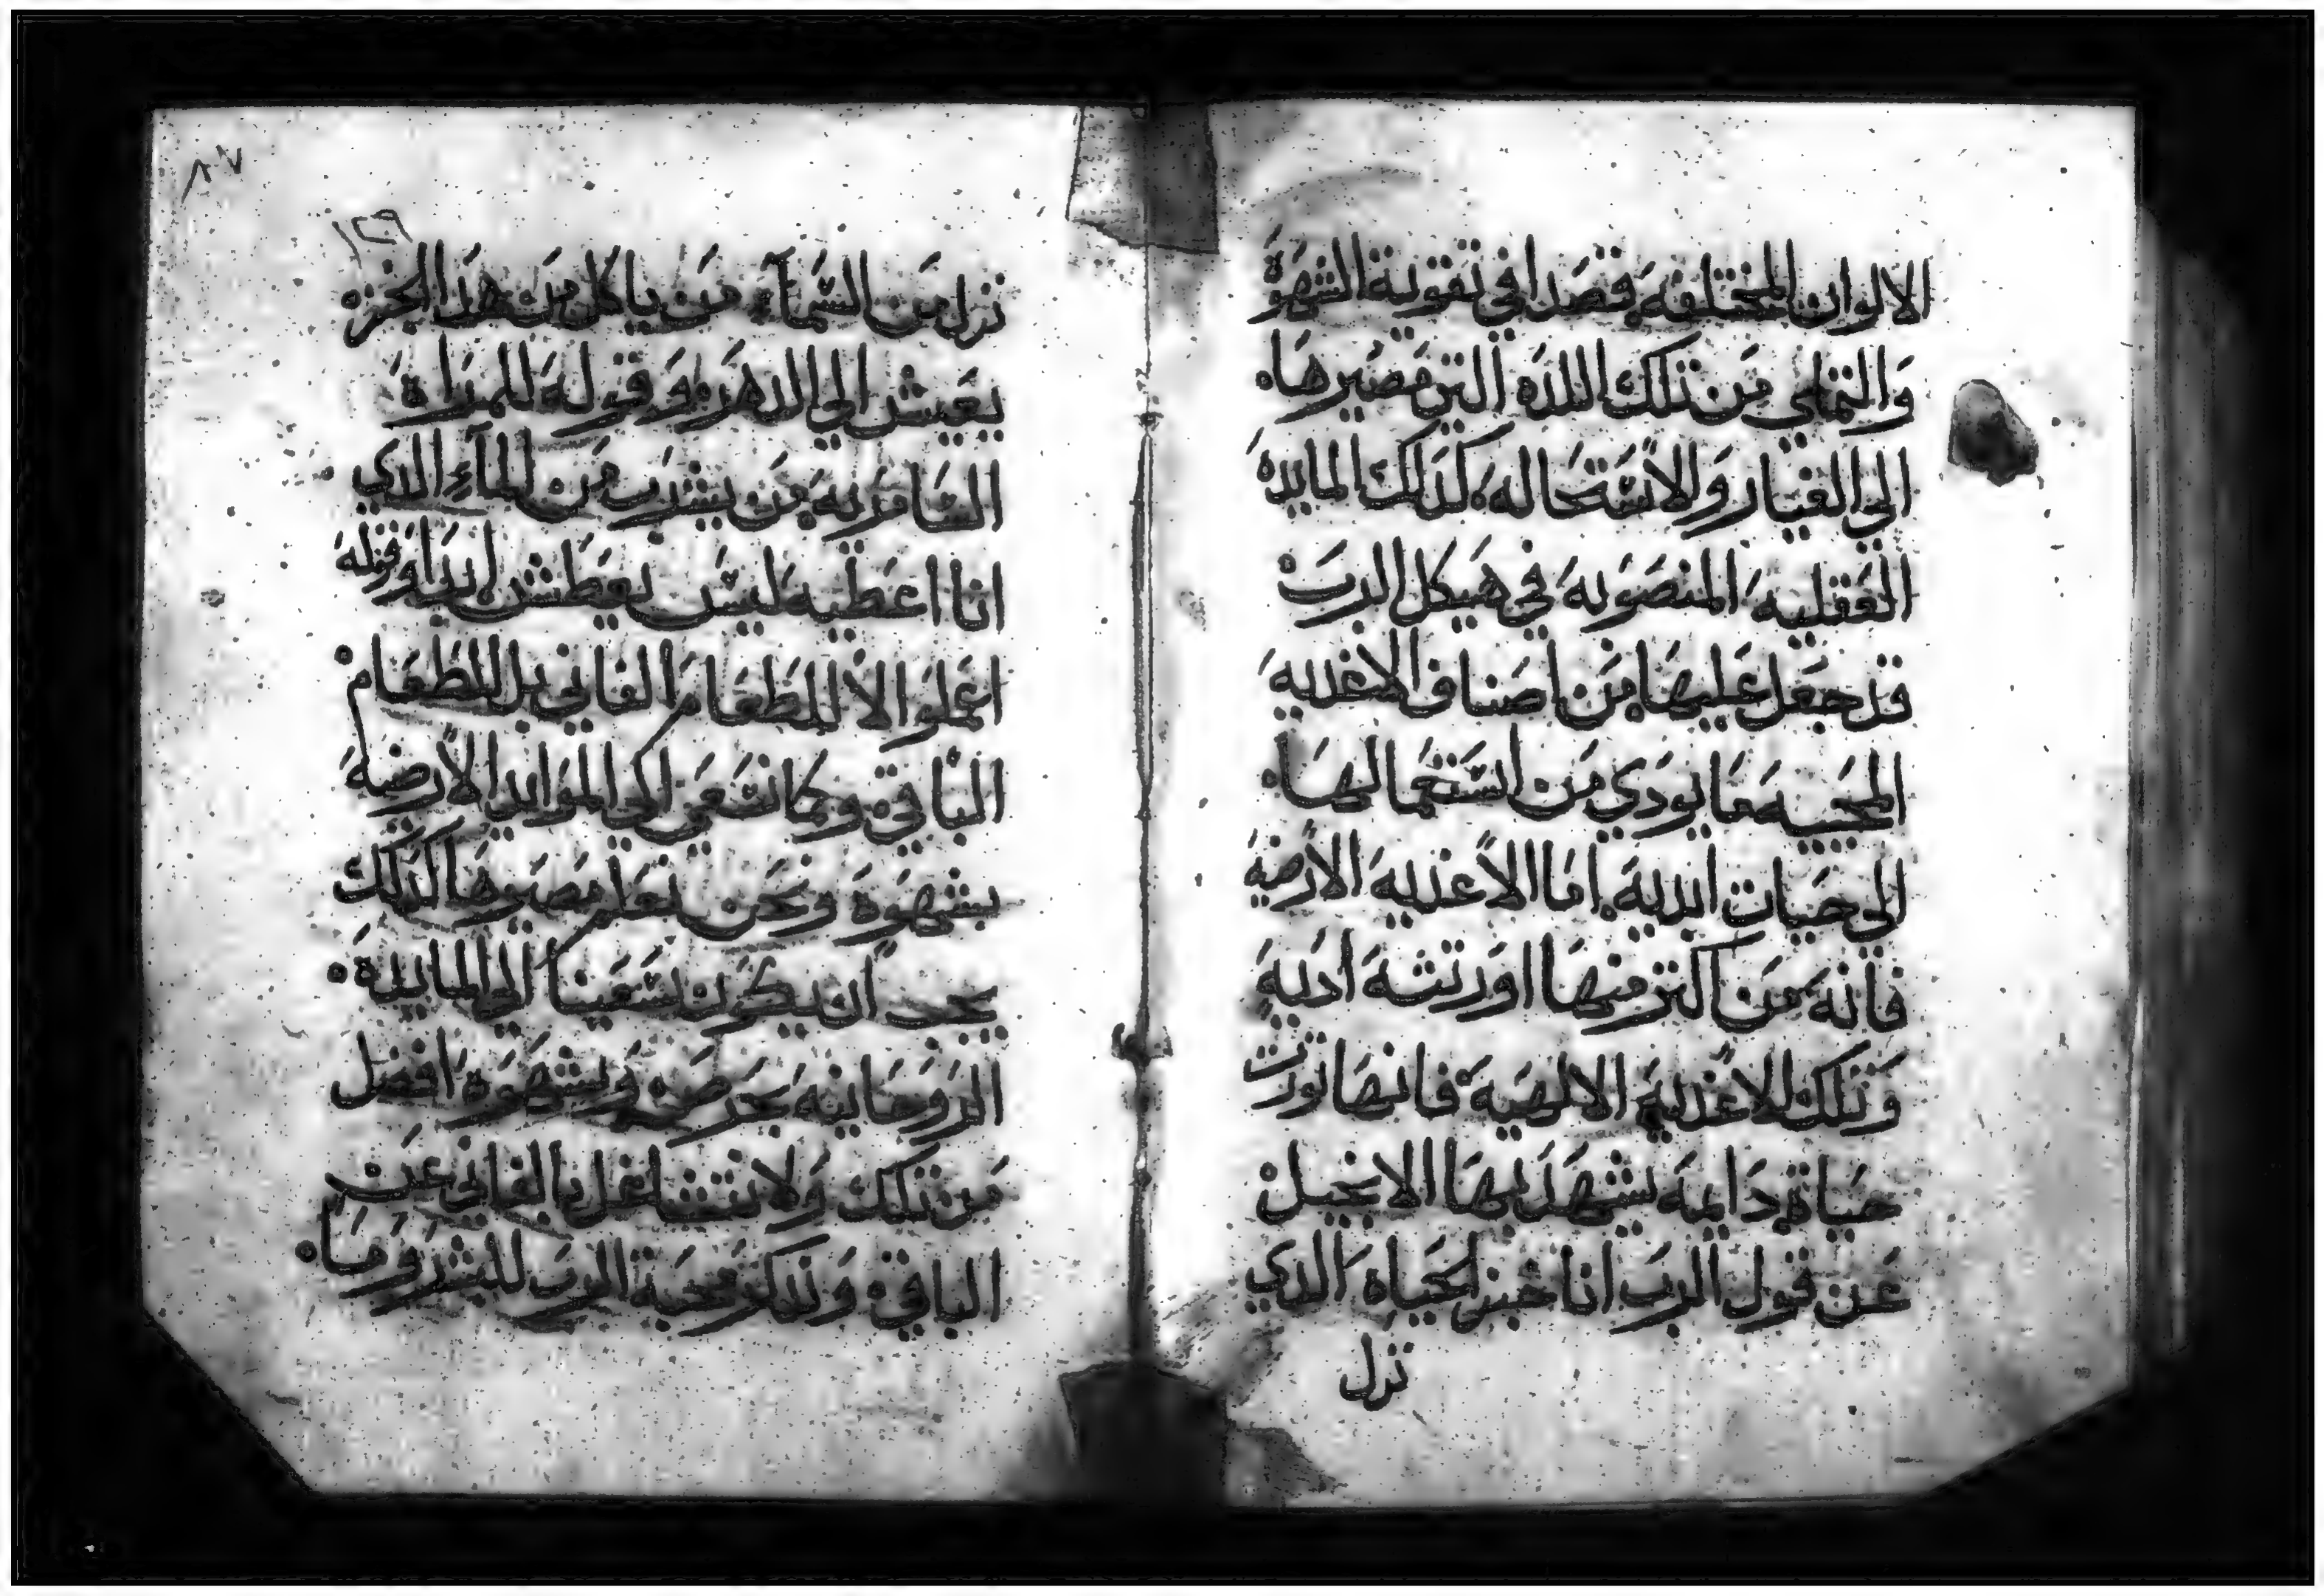 الالوان المختلفه قصدا في تقوية الشهوة
والتملي من تلك اللده التي مصيرها
الي الغيار والاستحاله كدلك المايده
العقليه المنصوبه في هيكل الرب
قد جعل عليها من اصناف الاغديه
المحييه معا يودي من استعمالها
الي حيات ابديه اما الاغذيه الارضيه
فانه من اكتر منها اورتثه ادية
وتلك الاغذية الالهية فانها تورت
حياة دايمه يشهد بها الانجيل
عن قول الرب انا خبز الحياه الدي
نزل
٨٧
١٢٩
نزل من السماء من ياكل من هدا الخبز
يعيش الي الدهر وقوله للمراه
السامريه من يشرب من الماء الدي
انا اعطيه ليس يعطش ابدا وقوله
اعملوا لا للطعام الفاني بل للطعام
الباقي وكما نسعي الي الموايد الارضيه
بشهوة ونحن نعلم مصيرها كدلك
يجب ان يكون سعينا الي المايدة
الروحانيه بحرص وشهوه افضل
من تلك ولا نتشاغل بالفاني عن
الباقي وندكر محبة الرب للبشر وما